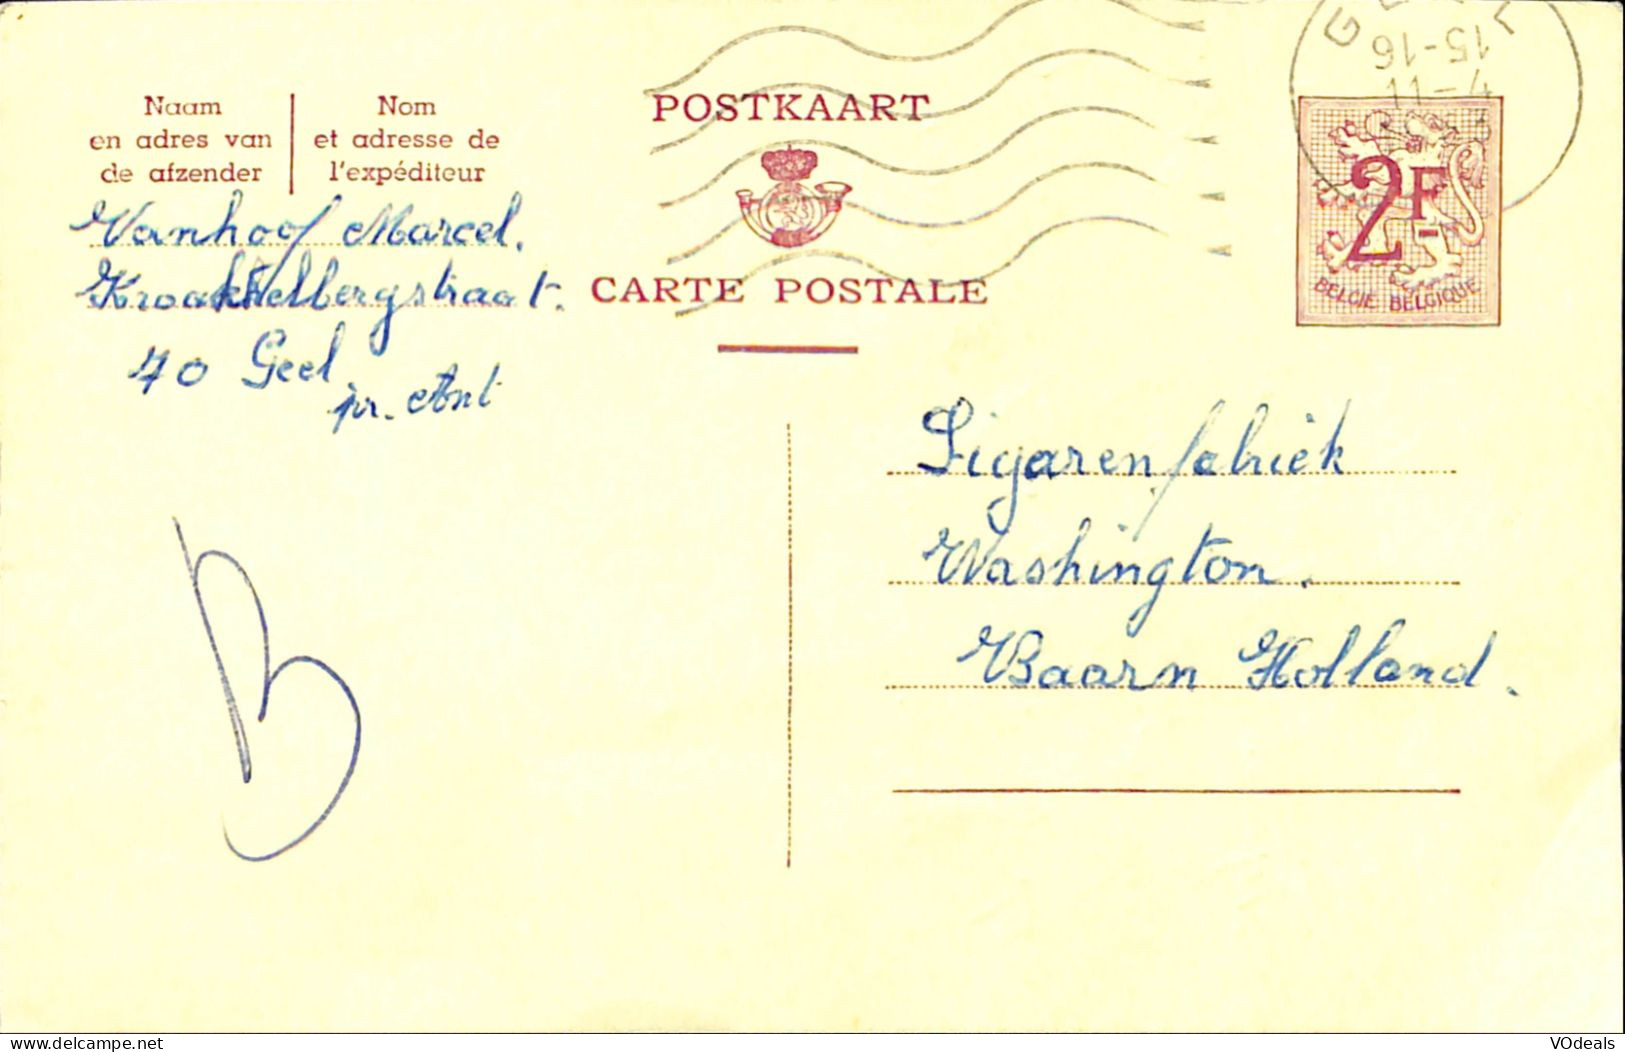 GEEL
15-16
11-4
Naam
en adres van
de afzender
Nom
et adresse de
l'expéditeur
POSTKAART
CARTE POSTALE
2F
BELGIE BELGIQUE
Vanhoof Marcel.
40 Geel
pr. Ant
Sigarenfabriek
Washington.
Baarn Holland.
B
VOdeals